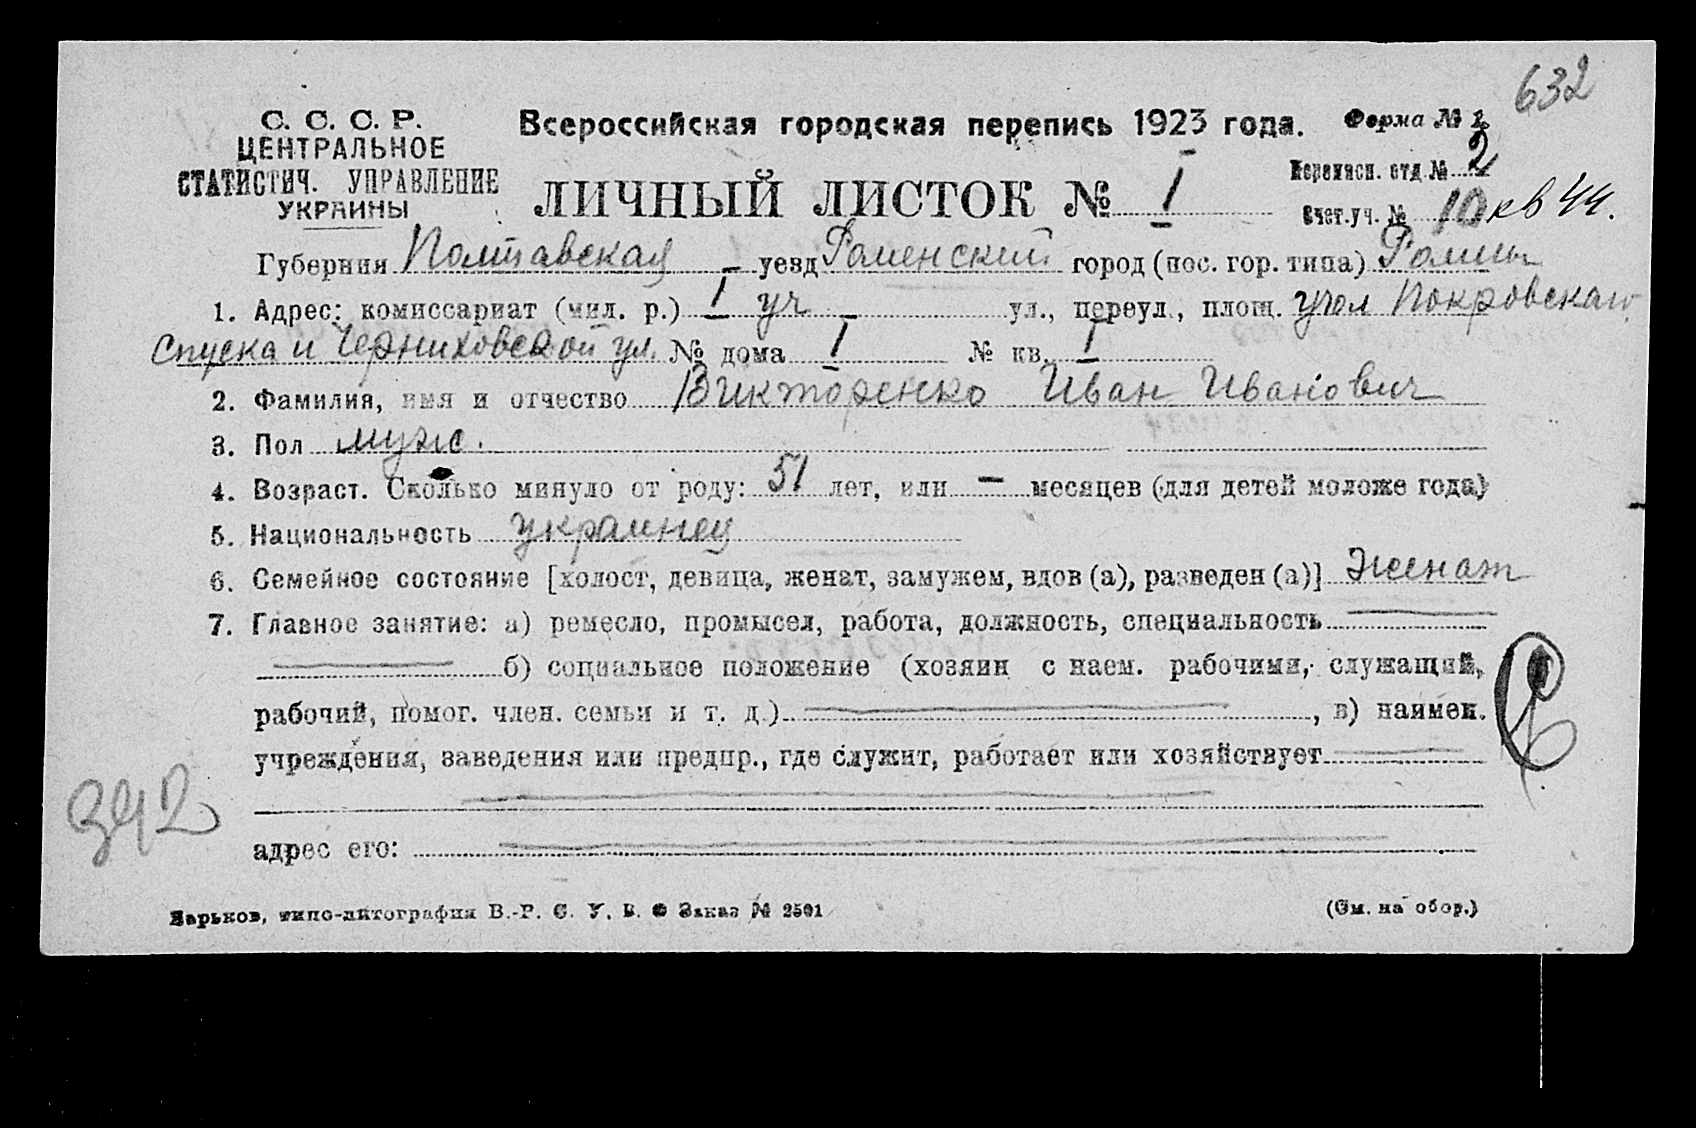 632
С. С. С. Р.
ЦЕНТРАЛЬНОЕ
СТАТИСТИЧ. УПРАВЛЕНИЕ
УКРАИНЫ
Всероссийская городская перепись 1923 года.
Форма № 1
ЛИЧНЫЙ ЛИСТОК № 1
Переписн. отд. № 2
Счет. уч. № 10 кв 44.
Губерния Полтавская уезд Роменский город (пос. гор. типа) Ромны
1. Адрес: комиссариат (мил. р.) I уч ул., переул., площ. угол Покровскаго
спуска и Черниховской ул. № дома 1 № кв. 1
2. Фамилия, имя и отчество Викторенко Иван Иванович
3. Пол муж.
4. Возраст. Сколько минуло от роду: 51 лет, или — месяцев (для детей моложе года)
5. Национальность украинец
6. Семейное состояние [холост, девица, женат, замужем, вдов (а), разведен (а)] Женат
7. Главное занятие: а) ремесло, промысел, работа, должность, специальность
б) социальное положение (хозяин с наем. рабочими, служащий,
рабочий, помог. член. семьи и т. д.) , в) наимен.
учреждения, заведения или предпр., где служит, работает или хозяйствует
392
адрес его:
Харьков, типо-литография В.-Р. С. У. В. Заказ № 2501
(См. на обор.)